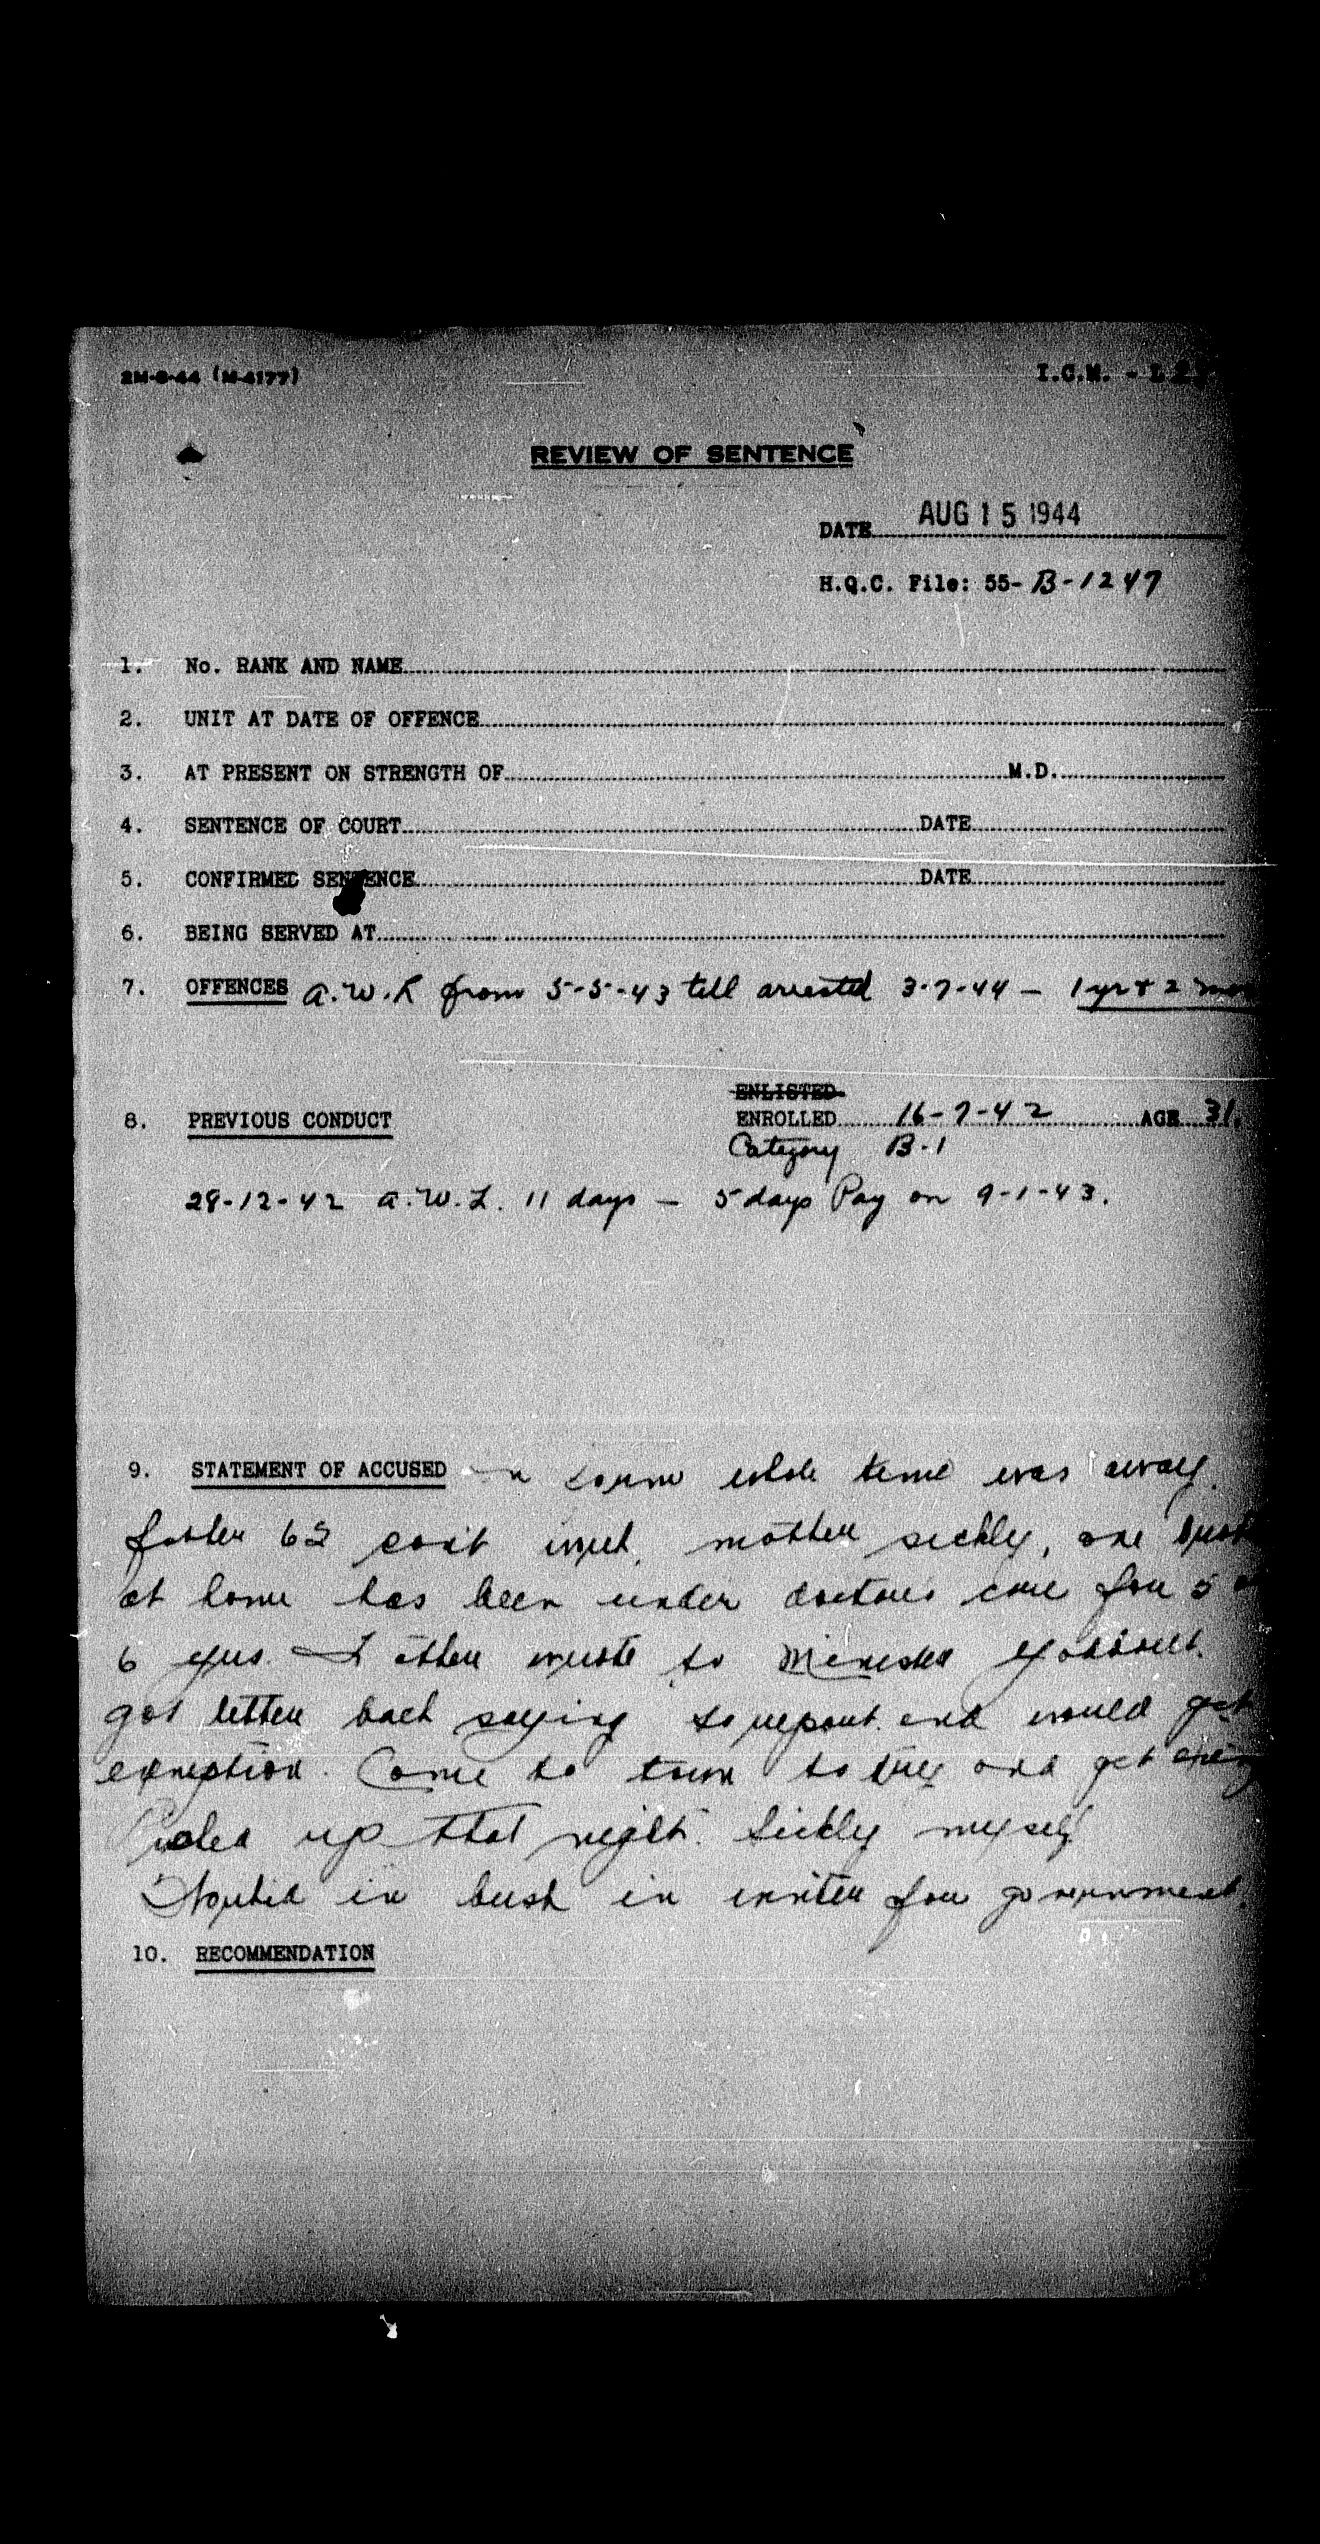 2M-8-44 (M-4177)
I.C.M. -
REVIEW OF SENTENCE
DATE AUG 15 1944
H.Q.C. File: 55- B-1247
1. No. RANK AND NAME
2. UNIT AT DATE OF OFFENCE
3. AT PRESENT ON STRENGTH OF M.D.
4. SENTENCE OF COURT DATE
5. CONFIRMED SENTENCE DATE
6. BEING SERVED AT
7. OFFENCES A.W.L from 5-5-43 till arrested 3-7-44 - 1 yr + 2 mos
ENLISTED
8. PREVIOUS CONDUCT ENROLLED 16-7-42 AGE 31.
Category B-1
28-12-42 A.W.L. 11 days - 5 days Pay on 9-1-43.
9. STATEMENT OF ACCUSED on farm whole time was away.
father 62 can't work, mother sickly, one
at home has been under doctors care for 5
6 yrs. I then wrote to
got letter back saying to report and would get
exemption. Came to town to try and get
Picked up that night. Sickly myself
in bush in winter for government.
10. RECOMMENDATION